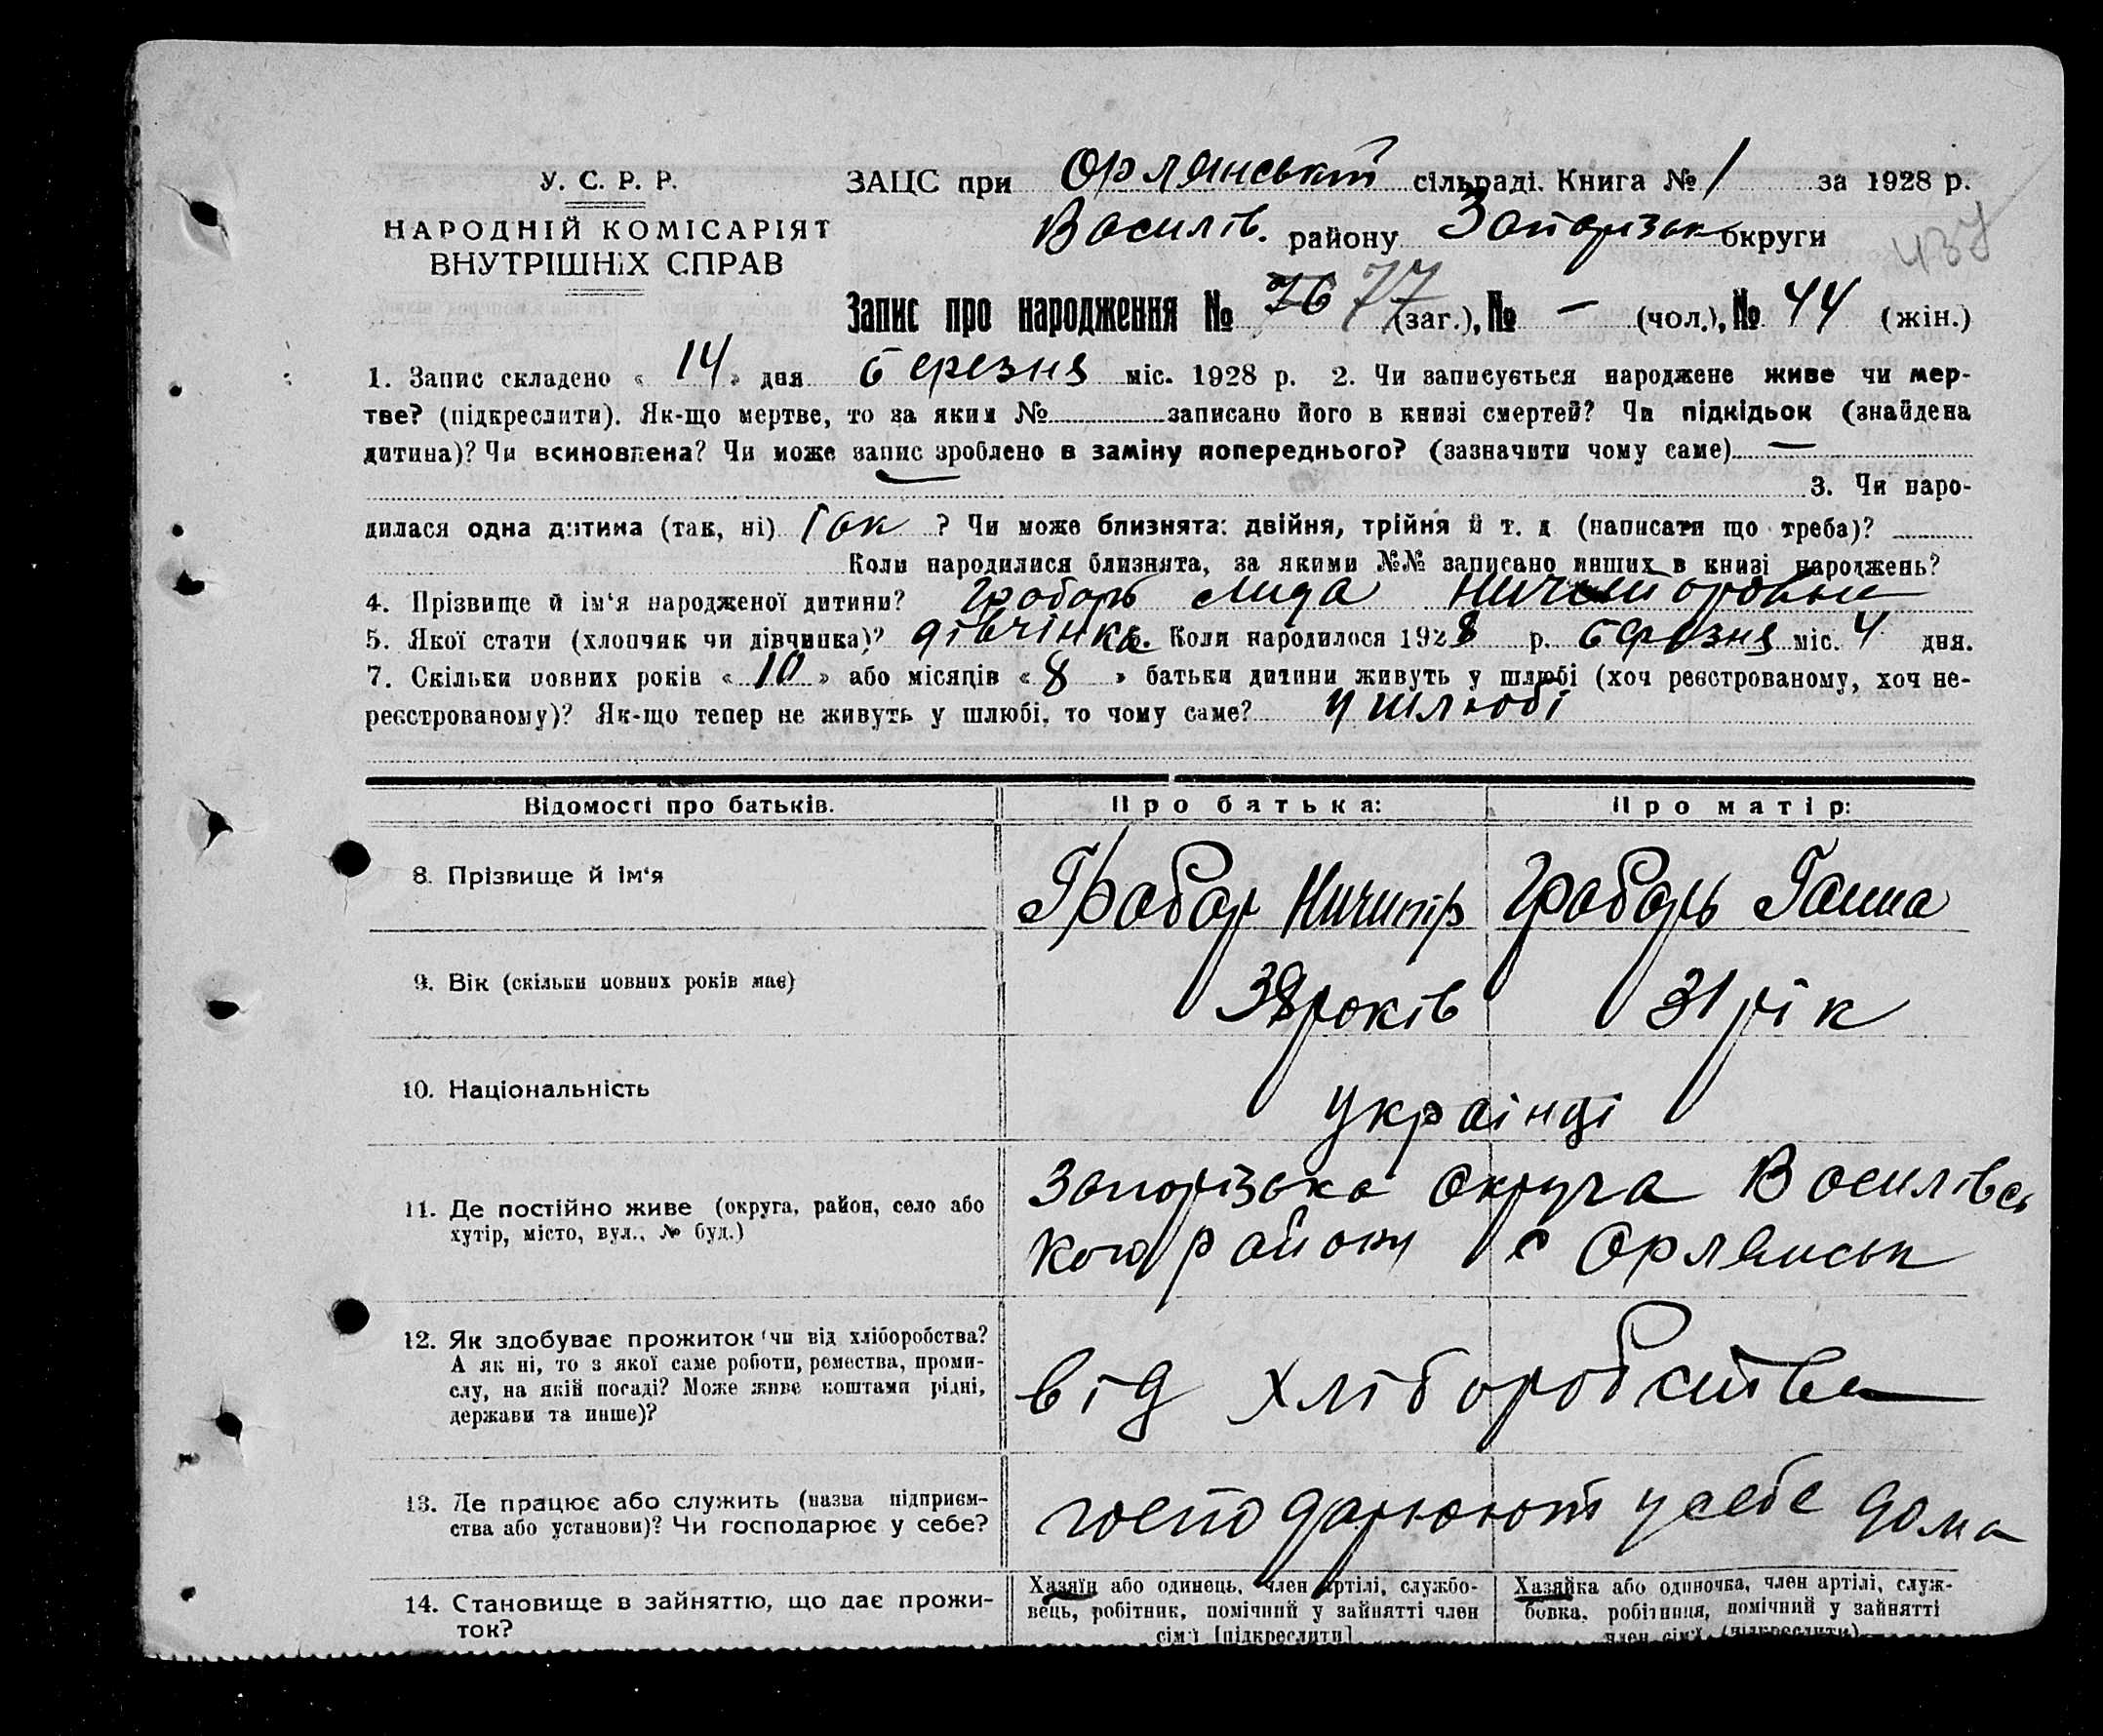 У. С. Р. Р.
НАРОДНІЙ КОМІСАРІЯТ
ВНУТРІШНІХ СПРАВ
ЗАЦС при Орлянській сільраді. Книга № 1 за 1928 р.
Василів. району Запорізьк округи
437
Запис про народження № 76 77 (заг.), № — (чол.), № 44 (жін.)
1. Запис складено « 14 » дня березня міс. 1928 р. 2. Чи записується народжене живе чи мер-
тве? (підкреслити). Як-що мертве, то за яким № записано його в книзі смертей? Чи підкідьок (знайдена
дитина)? Чи всиновлена? Чи може запис зроблено в заміну попереднього? (зазначити чому саме) —
3. Чи наро-
дилася одна дитина (так, ні) Так ? Чи може близнята: двійня, трійня й т. д (написати що треба)?
Коли народилися близнята, за якими №№ записано инших в книзі народжень?
4. Прізвище й ім‘я народженої дитини? Грабарь Лида
5. Якої стати (хлопчик чи дівчинка)? дівчінка. Коли народилося 1928 р. березня міс. 4 дня.
7. Скільки повних років « 10 » або місяців « 8 » батьки дитини живуть у шлюбі (хоч реєстрованому, хоч не-
реєстрованому)? Як-що тепер не живуть у шлюбі, то чому саме? у шлюбі
Відомості про батьків. Про батька: Про матір:
8. Прізвище й ім‘я Грабар Ничипір Грабарь Ганна
9. Вік (скільки повних років має) 38 років 31 рік
10. Національність українці
11. Де постійно живе (округа, район, село або
хутір, місто, вул., № буд.)
Запорізька округа Василівсь
кого району с Орлянськ
12. Як здобуває прожиток (чи від хліборобства?
А як ні, то з якої саме роботи, ремества, проми-
слу, на якій посаді? Може живе коштами рідні,
держави та инше)?
від хліборобства
13. Де працює або служить (назва підприєм-
ства або установи)? Чи господарює у себе?
господарюють у себе дома
14. Становище в зайняттю, що дає прожи-
ток?
Хазяїн або одинець, член артілі, службо-
вець, робітник, помічний у зайнятті член
сім‘ї [підкреслити]
Хазяйка або одиночка, член артілі, служ-
бовка, робітниця, помічний у зайнятті
член сім‘ї (підкреслити)